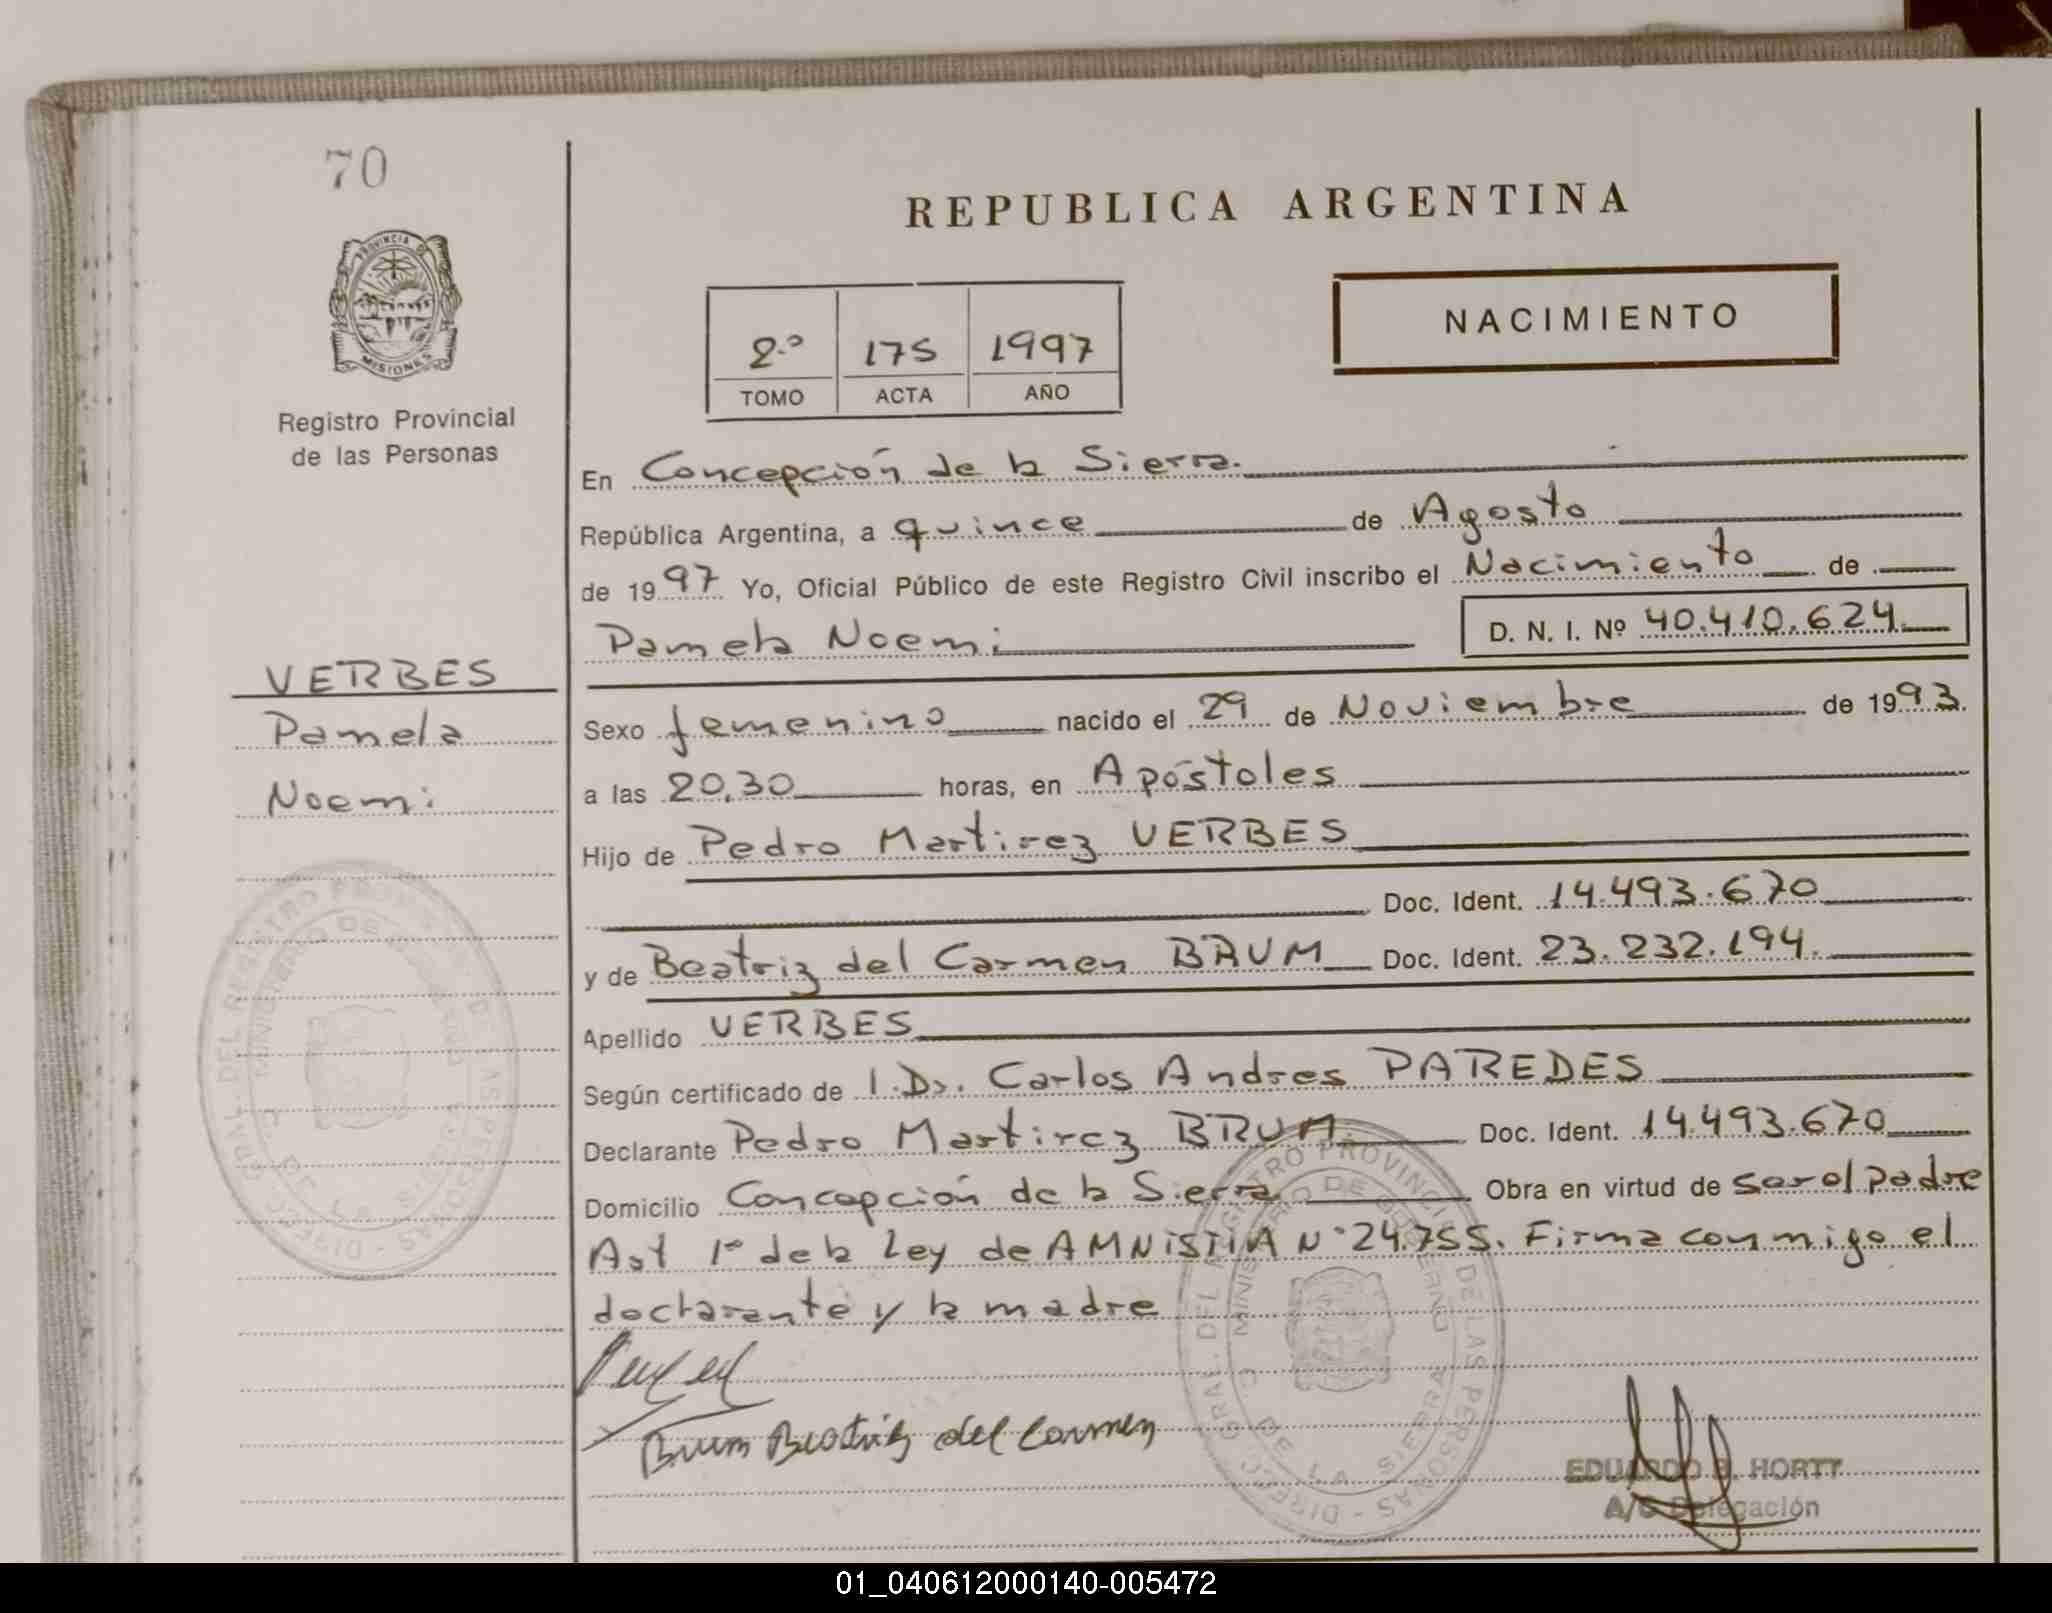 70
PROVINCIA DE
MISIONES
Registro Provincial
de las Personas
REPUBLICA ARGENTINA
NACIMIENTO
2.º 175 1997
TOMO ACTA AÑO
En Concepción de la Sierra.
República Argentina, a quince de Agosto
de 1997 Yo, Oficial Público de este Registro Civil inscribo el Nacimiento de
Pamela Noemi D. N. I. Nº 40.410.624.
VERBES
Pamela
Noemi
Sexo femenino nacido el 29 de Noviembre de 1993.
a las 20,30 horas, en Apóstoles
Hijo de Pedro Martirez VERBES
Doc. Ident. 14.493.670
y de Beatriz del Carmen BRUM Doc. Ident. 23.232.194.
Apellido VERBES
Según certificado de 1. Dr. Carlos Andres PAREDES
Declarante Pedro Martirez BRUM Doc. Ident. 14.493.670
Domicilio Concepción de la Sierra Obra en virtud de ser el padre
Art 1º de la Ley de AMNISTIA Nº 24.755. Firma conmigo el
declarante y la madre
Brum Beatriz del Carmen
DIRECC. GRAL. DEL REGISTRO PROVINCIAL DE LAS PERSONAS
MINISTERIO DE GOBIERNO
C. DE LA SIERRA
EDUARDO B. HORTT
A/C Delegación
01_040612000140-005472